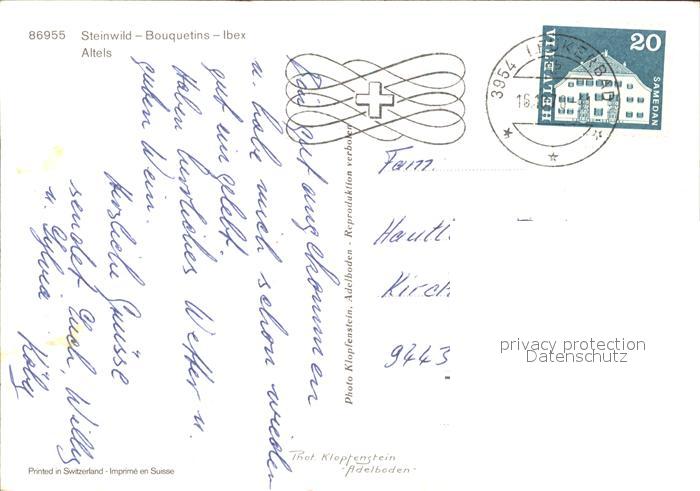 86955 Steinwild – Bouquetins – Ibex
Altels
Bin gut angekommen
u. habe mich schon wieder
gut eingelebt.
Haben herrliches Wetter u.
guten Wein.
Herzliche Grüsse
sendet Euch, Willy
u. Sylvia
Photo Klopfenstein, Adelboden - Reproduktion verboten
Printed in Switzerland - Imprimé en Suisse
Phot. Klopfenstein
- Adelboden -
3954 LEUKERBAD
HELVETIA
20
SAMEDAN
Fam.
9443
privacy protection
Datenschutz